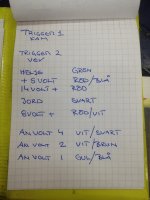 TRIGGER 1
KAM
TRIGGER 2
VEV
HELSE GRÖN
+ 5 VOLT RÖD/BLÅ
14 VOLT + RÖD
JORD SVART
8 VOLT + RÖD/VIT
AN VOLT 4 VIT/SVART
AN VOLT 2 VIT/BRUN
AN VOLT 1 GUL/BLÅ